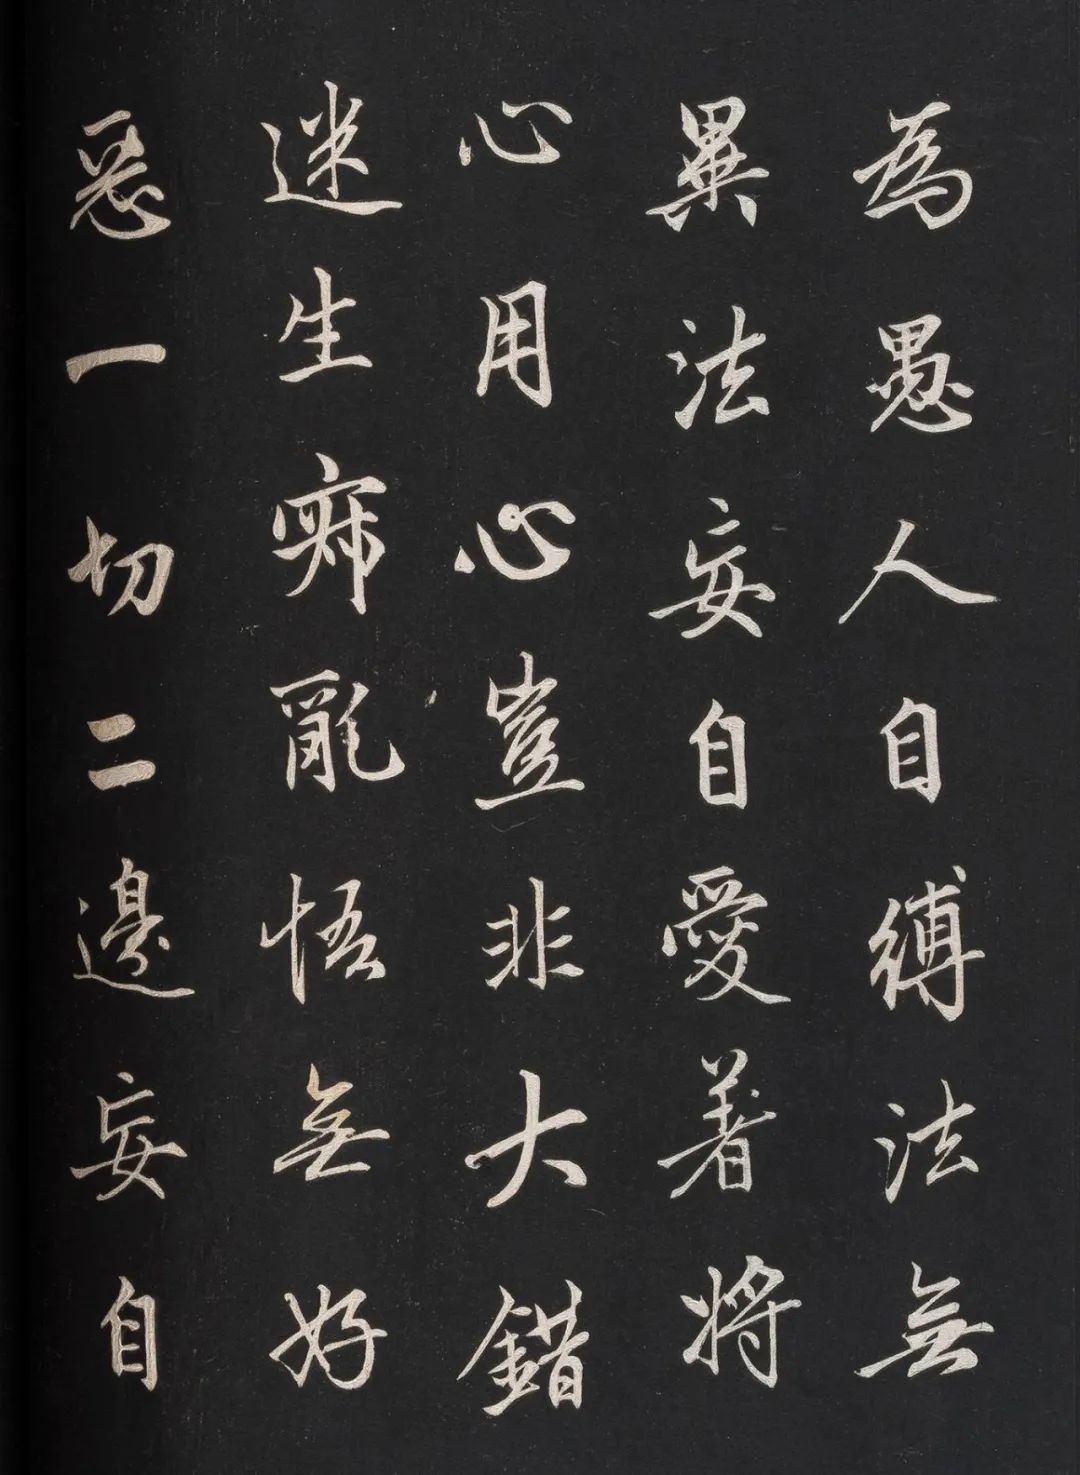 為愚人自縛法無
異法妄自愛著將
心用心豈非大錯
迷生寂亂悟無好
惡一切二邊妄自